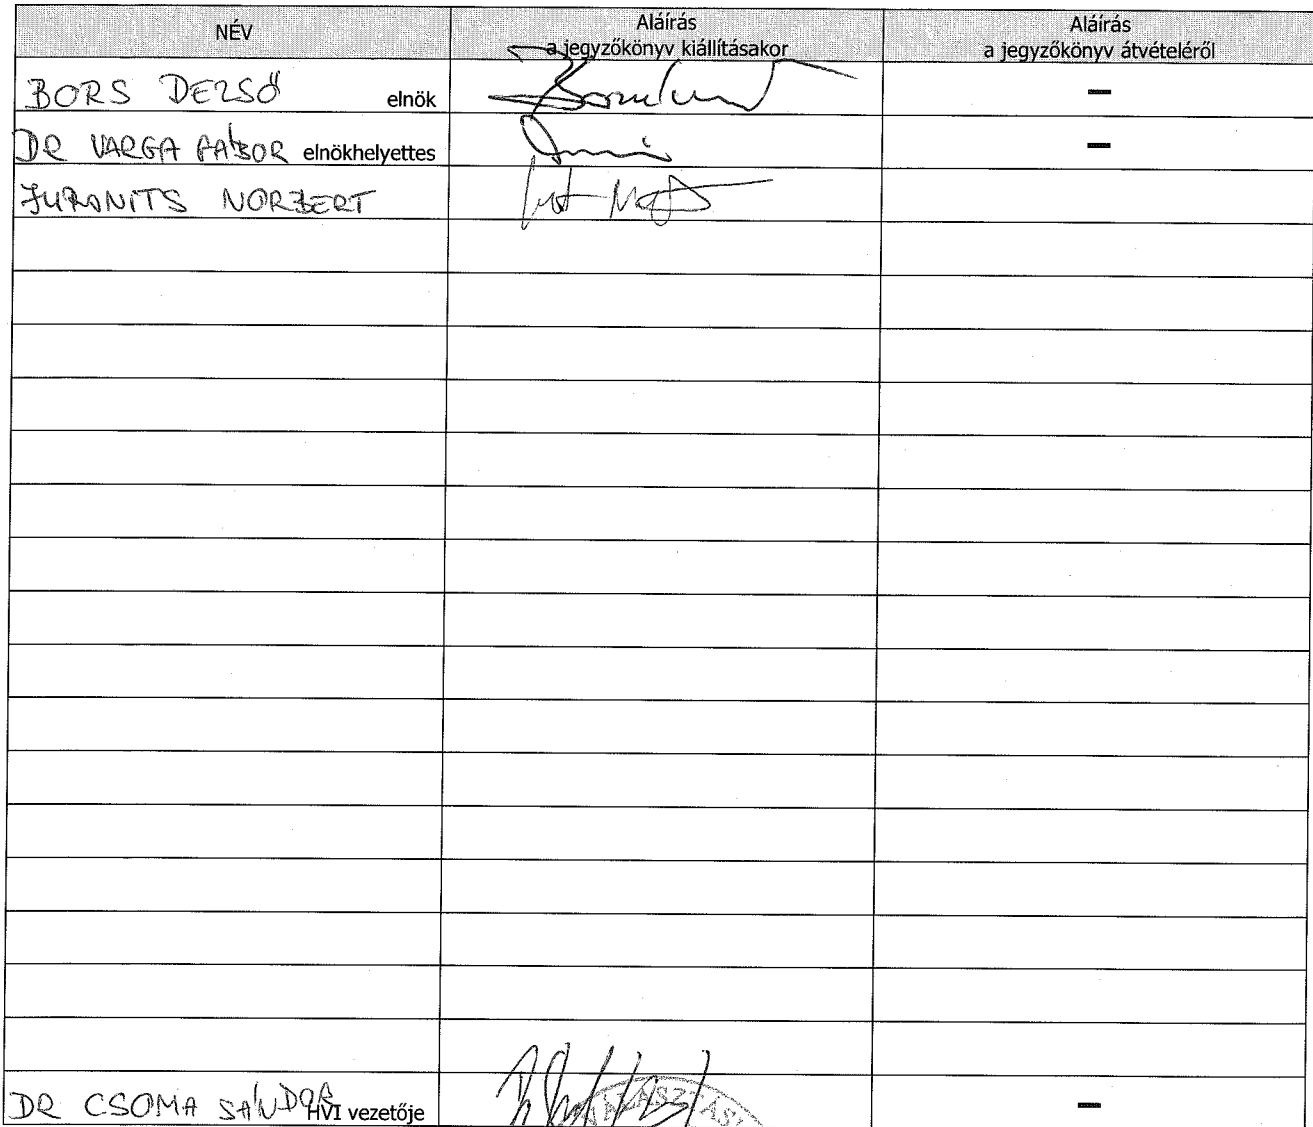 NÉV
Aláírás
a jegyzőkönyv kiállításakor
Aláírás
a jegyzőkönyv átvételéről
BORS DEZSŐ elnök
–
DR VARGA GÁBOR elnökhelyettes
–
JURANITS NORBERT
DR CSOMA SÁNDOR HVI vezetője
–